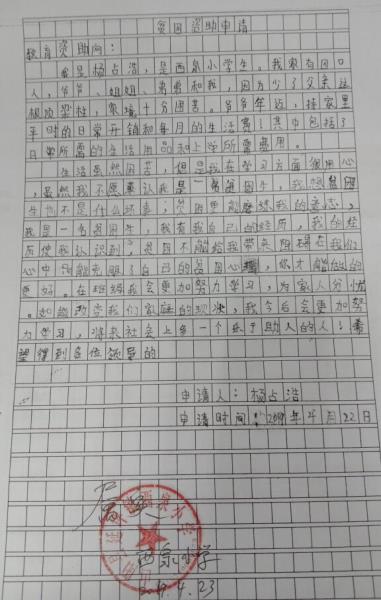 贫困资助申请
教育资助向：
我是杨占浩，是西泉小学生。我家有四口
人，爷爷、姐姐、弟弟和我，因为少了父亲这
根顶梁柱，家境十分困苦。爷爷年迈，
平时的日常开销和每月的生活费！其中包括了
日常所需的生活用品和上学所需费用。
生活虽然困苦，但是我在学习方面很用心
，虽然我不愿意认我是一名贫困生，我想贫困
生也不是什么坏事；贫困更能磨练我的意志，
我是一名贫困生，我有我自己的经历，我的经
历使我认识到，贫困不能给我带来阻碍在我们
心中只能克服了自己的贫困心理，你才能做的
更好。在班级我会更加努力学习，为家人分忧
。如能改变我们家庭的现状，我今后会更加努
力学习，将来社会上多一个乐于助人的人；希
望得到各位领导的
申请人：杨占浩
申请时间：2019年4月22日
西泉小学
2019.4.23